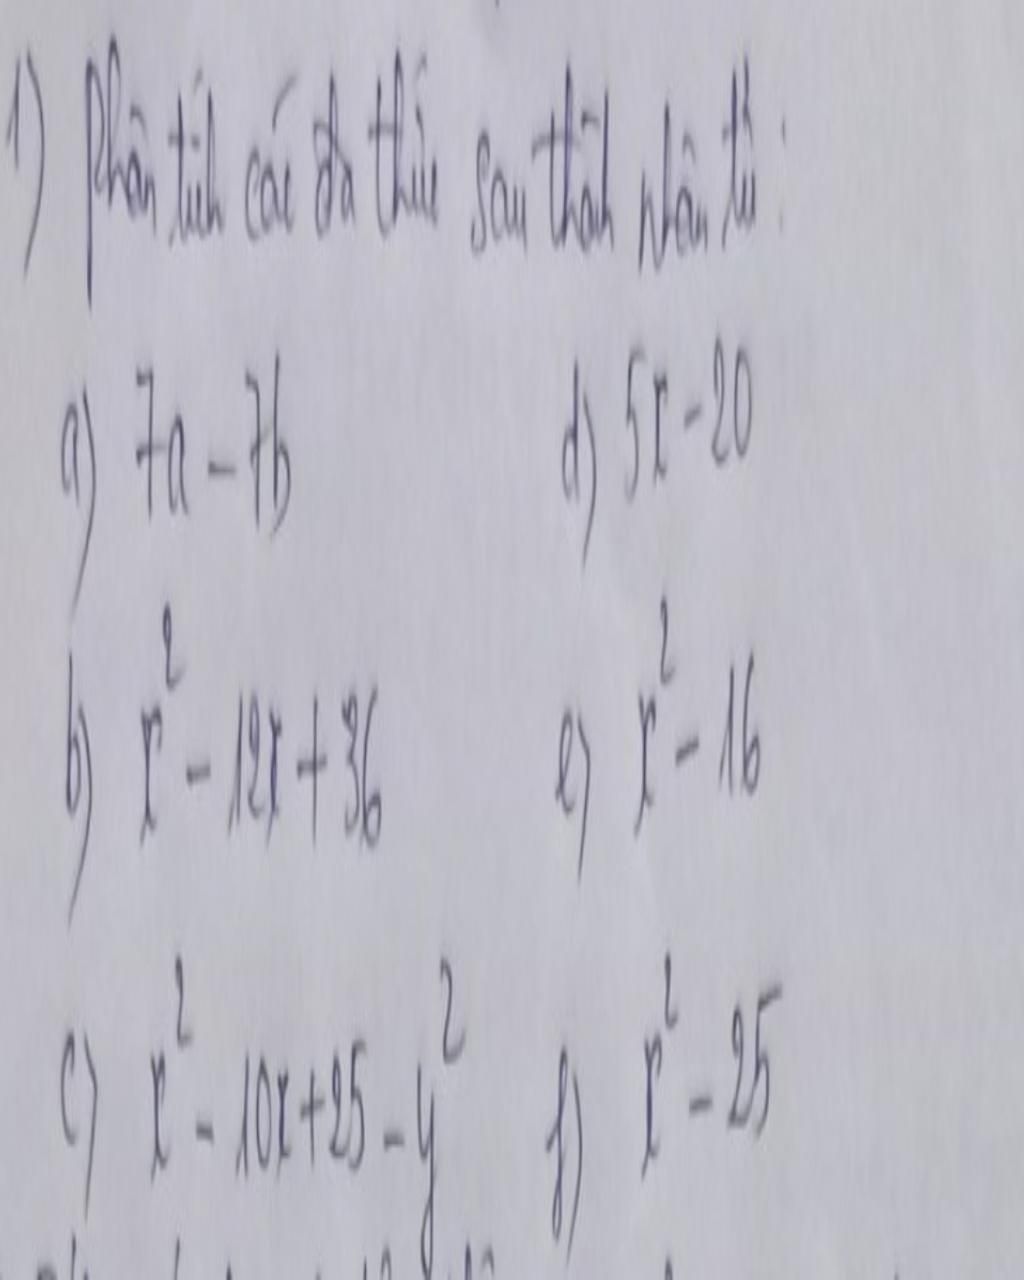 1) Phân tích các đa thức sau thành nhân tử:
a) 7a - 7b d) 5x - 20
b) x² - 12x + 36 e) x² - 16
c) x² - 10x + 25 - y² f) x² - 25